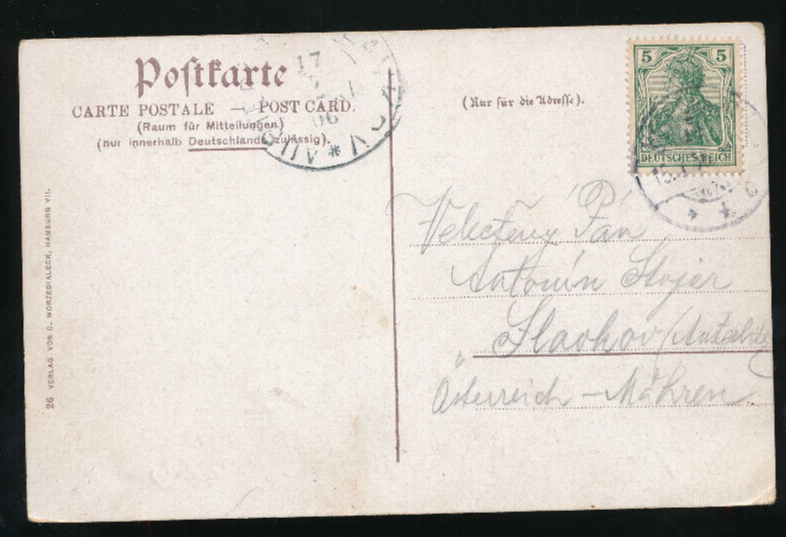 Postkarte
CARTE POSTALE — POST CARD.
(Raum für Mitteilungen)
(nur innerhalb Deutschlands zulässig).
17
06
(Nur für die Adresse).
5 5
DEUTSCHES REICH
Pán
Antonín Stojer
Slavkov
Österreich - Mähren
26 VERLAG VON C. WORZEDIALECK, HAMBURG VII.